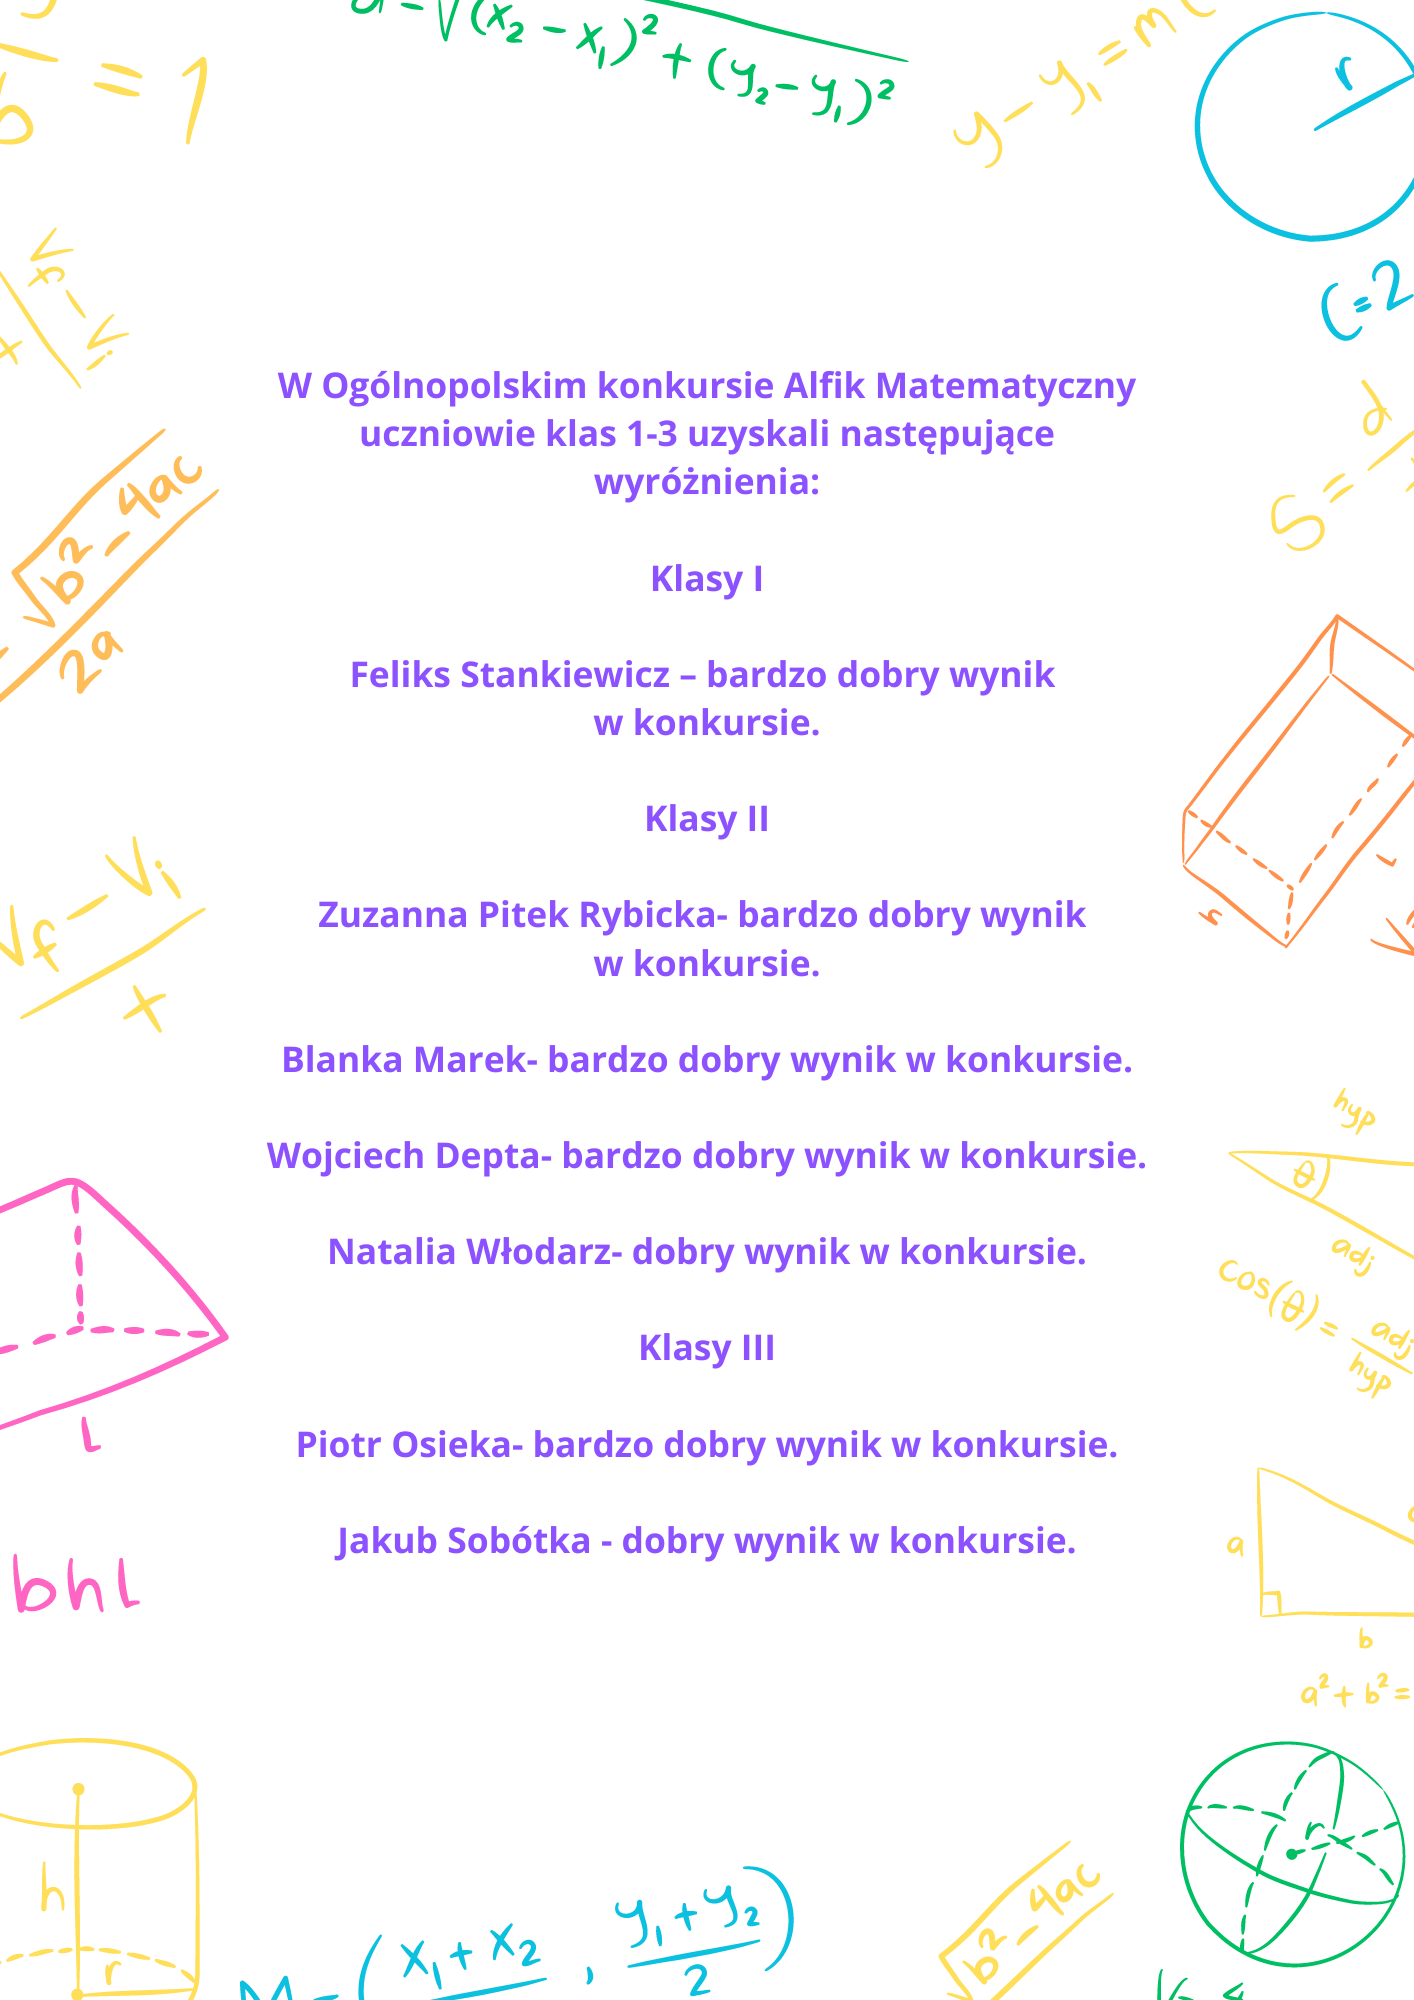 = 1
(x₂ - x₁)² + (y₂ - y₁)²
y - y₁ = m
r
C = 2
W Ogólnopolskim konkursie Alfik Matematyczny
uczniowie klas 1-3 uzyskali następujące
wyróżnienia:
√b² - 4ac
2a
S =
d
Klasy I
Feliks Stankiewicz – bardzo dobry wynik
w konkursie.
Klasy II
Vf - Vi
x
Zuzanna Pitek Rybicka- bardzo dobry wynik
w konkursie.
h
Blanka Marek- bardzo dobry wynik w konkursie.
hyp
Wojciech Depta- bardzo dobry wynik w konkursie.
θ
adj
Natalia Włodarz- dobry wynik w konkursie.
cos(θ) = adj
hyp
Klasy III
L
Piotr Osieka- bardzo dobry wynik w konkursie.
Jakub Sobótka - dobry wynik w konkursie.
a
bhl
b
a² + b² =
h
r
r
x₁ + x₂ , y₁ + y₂
2
b² - 4ac